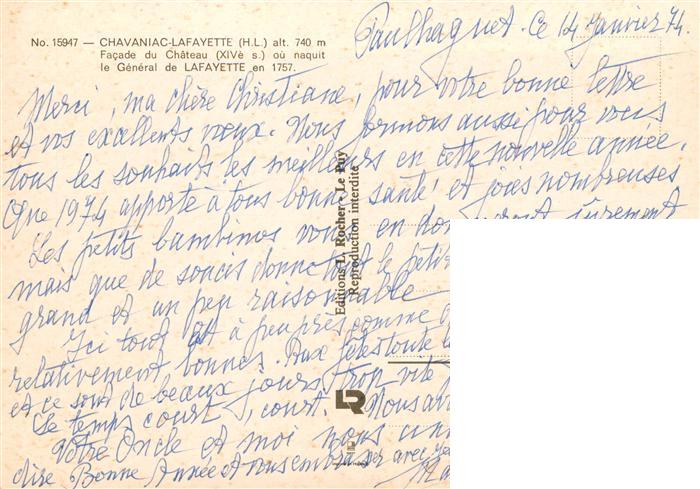 No. 15947 — CHAVANIAC-LAFAYETTE (H.L.) alt. 740 m
Façade du Château (XIVè s.) où naquit
le Général de LAFAYETTE en 1757.
Paulhaguet. Ce 14 janvier 74.
Merci, ma chère Christiane, pour votre bonne lettre
et vos excellents vœux. Nous formons aussi pour vous
tous les souhaits les meilleurs en cette nouvelle année.
Que 1974 apporte à tous bonne santé et joies nombreuses
Les petits bambinos vous en donneront sûrement
mais que de soucis donne tout le petit
grand et un peu raisonnable
Ici tout est à peu près comme
relativement bonnes. Aux fêtes toute la
et ce sont de beaux jours trop vite
Le temps court, court. Nous
Votre Oncle et moi nous
dire Bonne Année et embrasser avec
Editions L. Rocher - Le Puy
Reproduction interdite
LR